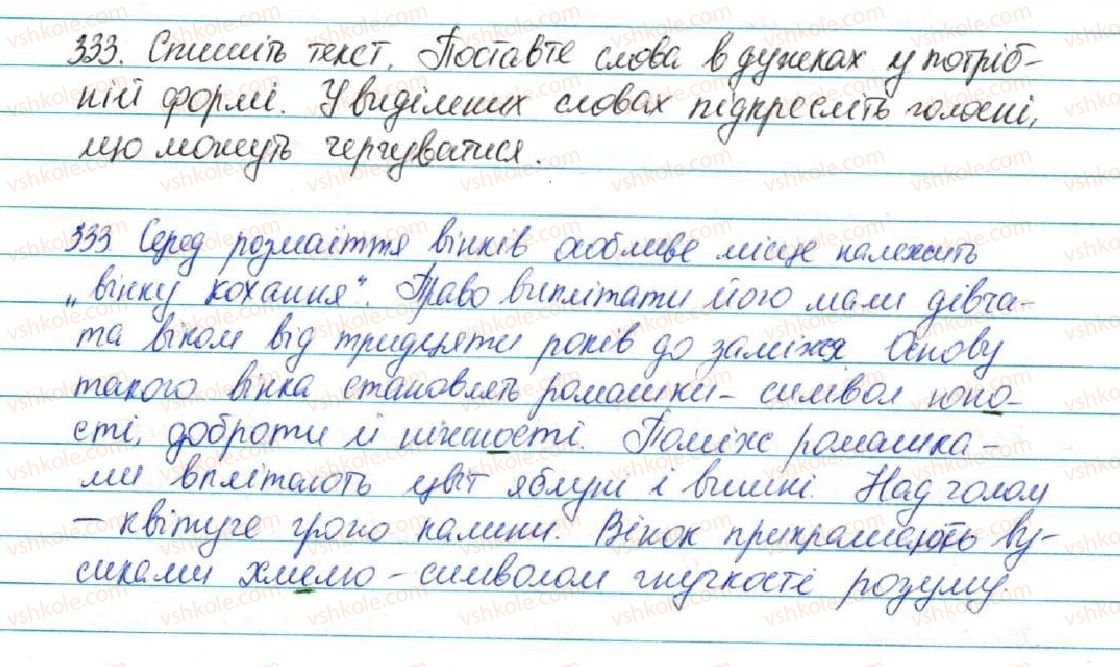 333. Спишіть текст. Поставте слова в дужках у потріб-
ній формі. У виділених словах підкресліть голосні,
що можуть чергуватися.
333 Серед розмаїття вінків особливе місце належить
„вінку кохання“. Право виплітати його мали дівча-
та віком від тридцяти років до заміжжя Основу
такого вінка становлять ромашки – символ юно-
сті, доброти й ніжності. Поміж ромашка-
ми вплітають цвіт яблуні і вишні. Над чолом
– квітуче гроно калини. Вінок прикрашають ву-
сиками хмелю – символом гнучкості розуму.